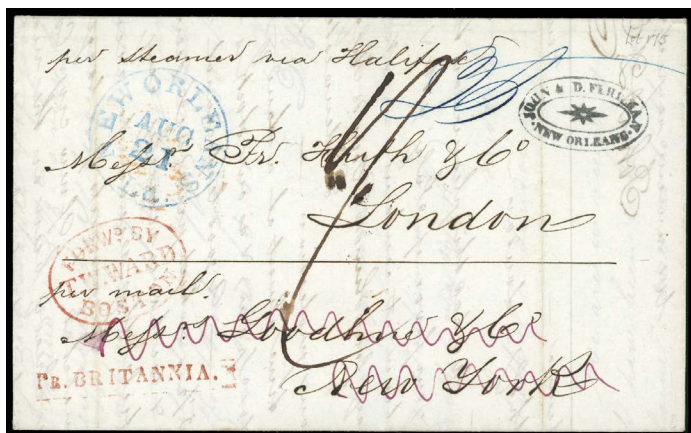 per steamer via Halifax
NEW ORLEANS
AUG
21
LA.
JOHN & D.
NEW ORLEANS.
Messrs. Fr. Huth & Co
London
FORWD. BY
T.W. WARD
BOSTON
per mail.
Messrs Goodhue & Co
New York
PR. BRITANNIA.